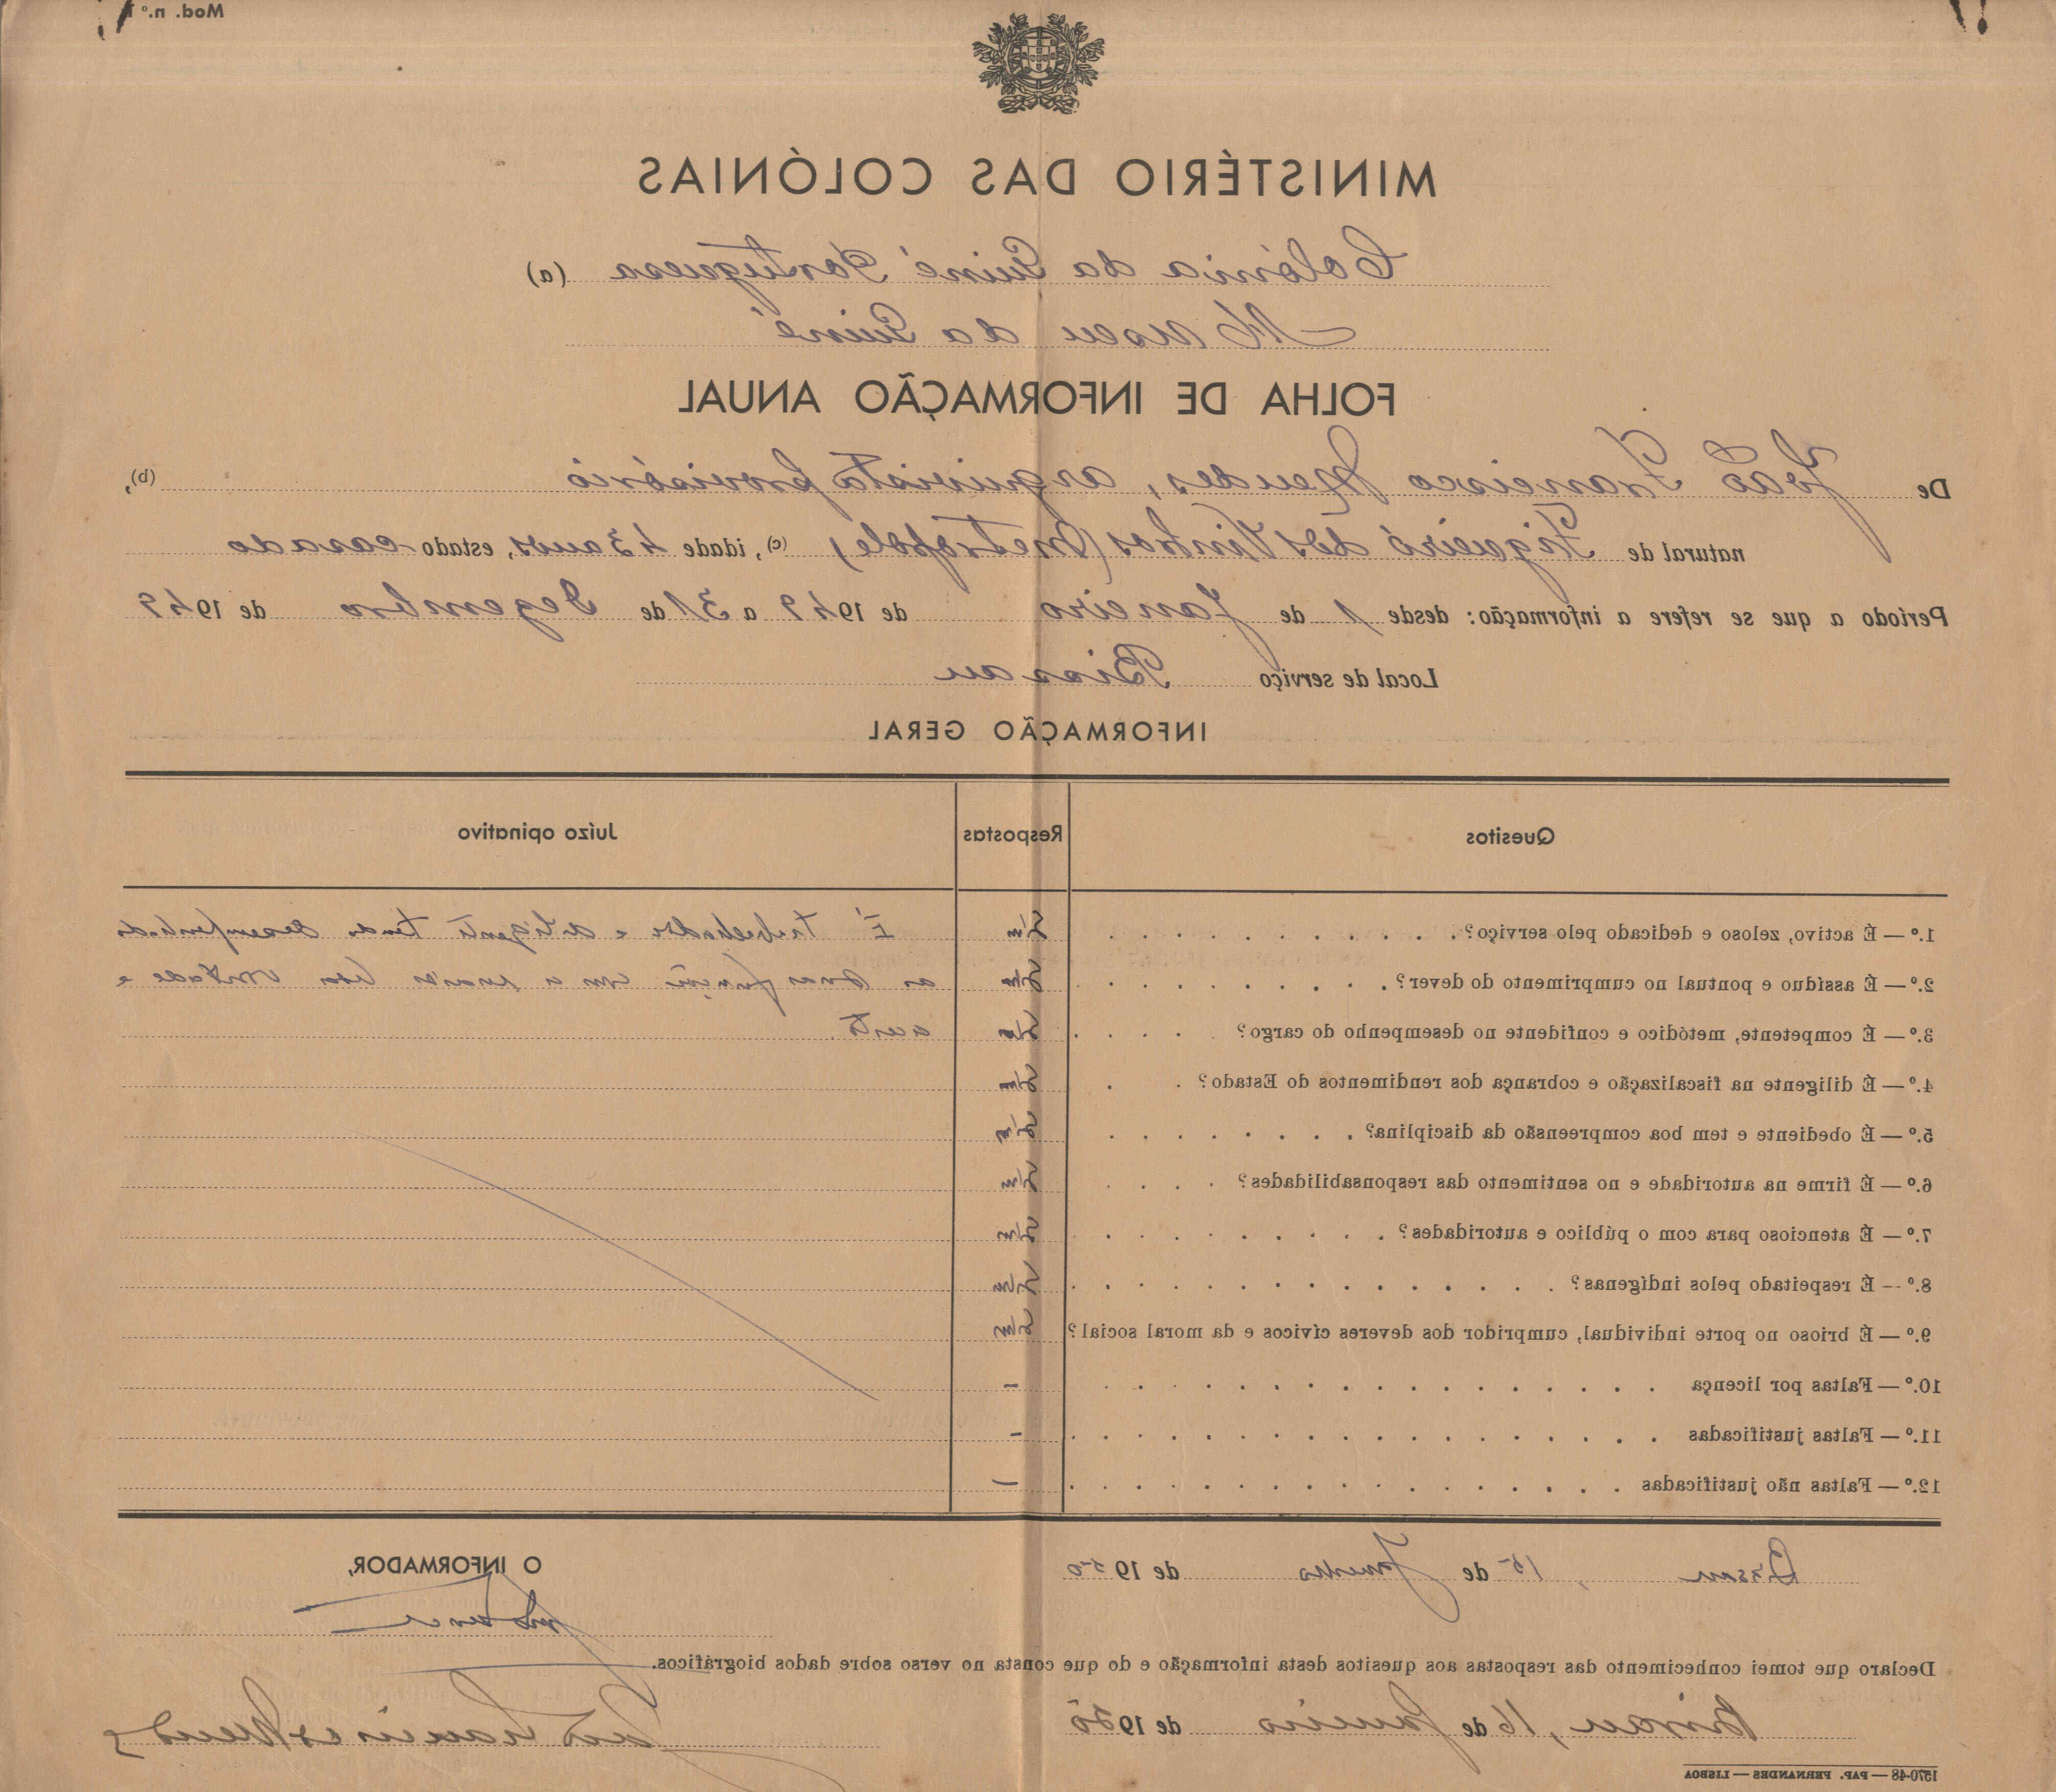 Mod. n.º 1
MINISTÉRIO DAS COLÓNIAS
Colónia da Guiné Portuguesa (a)
Museu da Guiné
FOLHA DE INFORMAÇÃO ANUAL
De João Francisco Mendes, arquivista provisório (b),
natural de Figueiró dos Vinhos (Metrópole) (c), idade 43 anos, estado casado
Período a que se refere a informação: desde 1 de Janeiro de 1949 a 31 de Dezembro de 1949
Local de serviço Bissau
INFORMAÇÃO GERAL
Quesitos Respostas Juízo opinativo
1.º — É activo, zeloso e dedicado pelo serviço? Sim É trabalhador e diligente tendo desempenhado
2.º — É assíduo e pontual no cumprimento do dever? Sim as suas funções com a maior boa vontade e
3.º — É competente, metódico e confidente no desempenho do cargo? Sim acerto.
4.º — É diligente na fiscalização e cobrança dos rendimentos do Estado? Sim
5.º — É obediente e tem boa compreensão da disciplina? Sim
6.º — É firme na autoridade e no sentimento das responsabilidades? Sim
7.º — É atencioso para com o público e autoridades? Sim
8.º — É respeitado pelos indígenas? Sim
9.º — É brioso no porte individual, cumpridor dos deveres cívicos e da moral social? Sim
10.º — Faltas por licença –
11.º — Faltas justificadas –
12.º — Faltas não justificadas –
Bissau, 15 de Janeiro de 1950 O INFORMADOR,
Declaro que tomei conhecimento das respostas aos quesitos desta informação e do que consta no verso sobre dados biográficos.
Bissau, 16 de Janeiro de 1950 João Francisco Mendes
1570-48 — PAP. FERNANDES — LISBOA